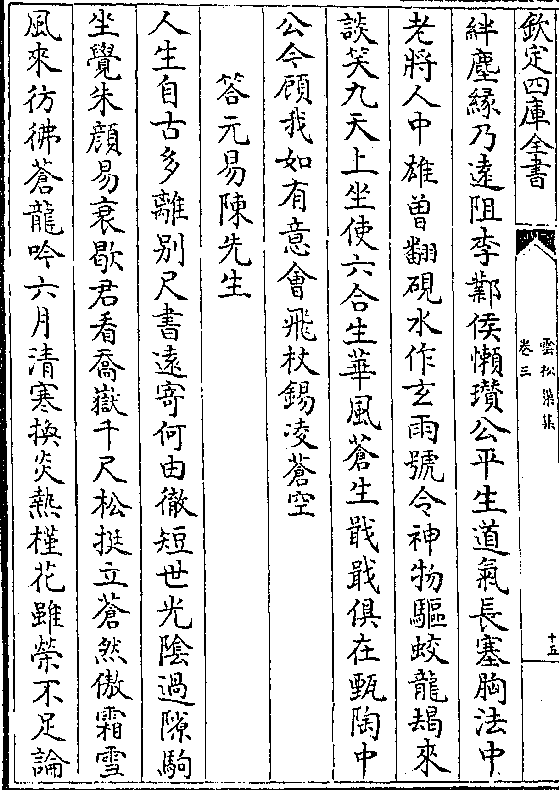 欽定四庫全書
雲松巢集
卷三
十五
絆塵緣乃遠阻李鄴侯懶瓚公平生道氣長塞胸法中
老將人中雄曽翻硯水作玄雨號令神物驅蛟龍朅來
談笑九天上坐使六合生華風蒼生戢戢俱在甄陶中
公今顧我如有意會飛杖錫凌蒼空
答元易陳先生
人生自古多離别尺書遠寄何由徹短世光陰過隙駒
坐覺朱顔易衰歇君看喬嶽千尺松挺立蒼然傲霜雪
風來彷彿蒼龍吟六月清寒換炎熱槿花雖榮不足論